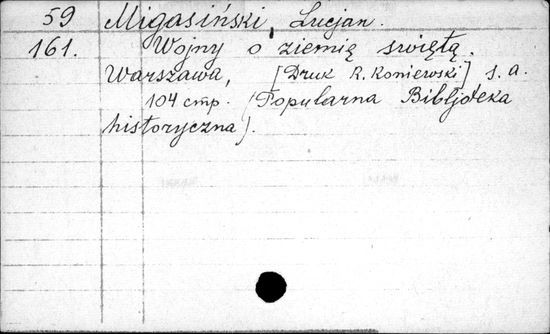 59 Migasiński, Lucjan.
161. Wojny o ziemię swiętą.
Warszawa, [Druk R. Koniewski] s. a.
104 cmp. (Popularna Bibljoteka
historyczna).